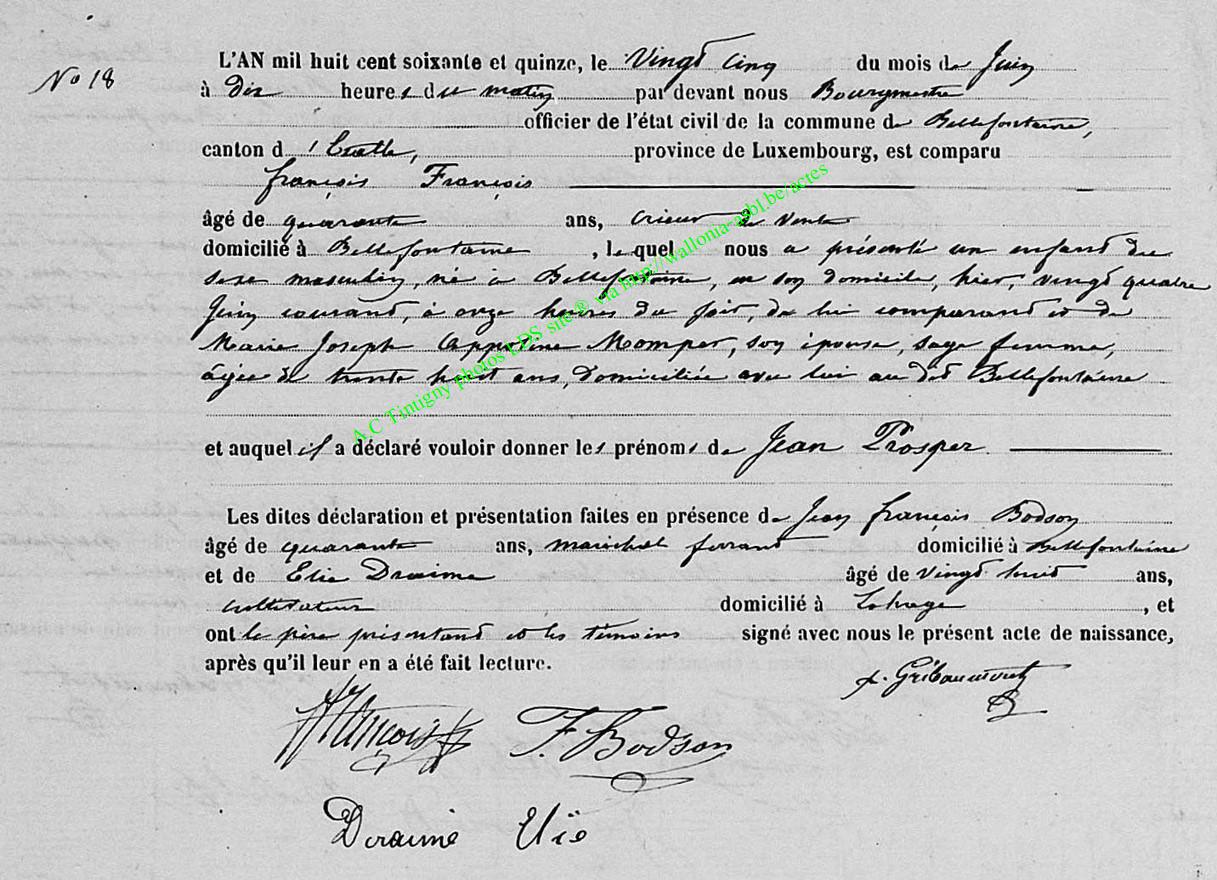 No 18
L'AN mil huit cent soixante et quinze, le Vingt cinq du mois de Juin
à dix heures du matin par devant nous Bourgmestre
officier de l'état civil de la commune de Bellefontaine,
canton d'Etalle, province de Luxembourg, est comparu
françois François
âgé de quarante ans, crieur de vente
domicilié à Bellefontaine, lequel nous a présenté un enfant du
sexe masculin, né à Bellefontaine, en son domicile, hier, vingt quatre
Juin courant, à onze heures du soir, de lui comparant et de
Marie Joseph Appoline Momper, son épouse, sage femme,
âgée de trente huit ans, domiciliée avec lui au dit Bellefontaine
et auquel il a déclaré vouloir donner les prénoms de Jean Prosper
Les dites déclaration et présentation faites en présence de Jean françois Bodson
âgé de quarante ans, maréchal ferrant domicilié à Bellefontaine
et de Elie Draime âgé de vingt huit ans,
cultivateur domicilié à Lahage, et
ont le père présentant et les témoins signé avec nous le présent acte de naissance,
après qu'il leur en a été fait lecture.
Gribaumont
François J. Bodson
Draime Elie
A.C Tintigny photos LDS site ® via http://wallonia-asbl.be/actes